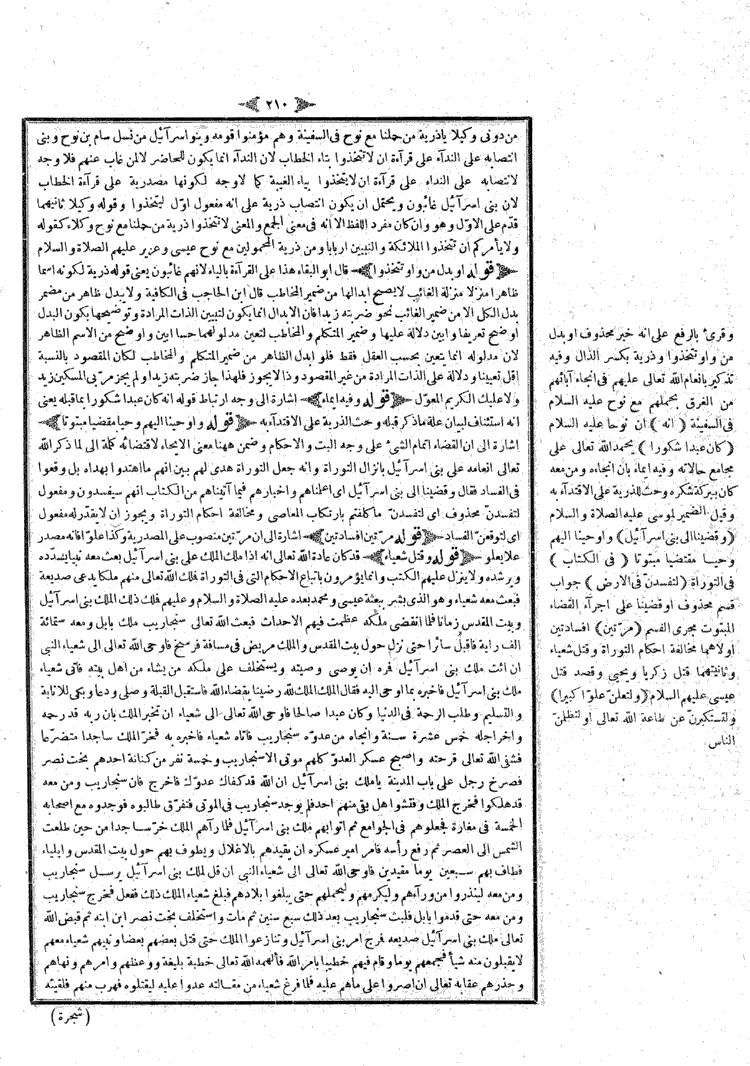 ﴿ ٢١٠ ﴾
من دونى وكيلا ياذرية من حملنا مع نوح فى السفينة وهم مؤمنوا قومه وبنو اسرآئيل من نسل سام بن نوح وبنى
انتصابه على الندآء على قرآءة ان لاتتخذوا بتاء الخطاب لان الندآء انما يكون للحاضر لالمن غاب عنهم فلا وجه
لانتصابه على النداء على قرآءة ان لايتخذوا بياء الغيبة كما لاوجه لكونها مصدرية على قرآءة الخطاب
لان بنى اسرآئيل غائبون ويحتمل ان يكون انتصاب ذرية على انه مفعول اوّل ليتخذوا وقوله وكيلا ثانيهما
قدّم على الاوّل وهو وان كان مفرد اللفظ الا انه فى معنى الجمع والمعنى لاتتخذوا ذرية من حملنا مع نوح وكلاء كقوله
ولايأمركم ان تتخذوا الملائكة والنبيين اربابا ومن ذرية المحمولين مع نوح عيسى وعزير عليهم الصلاة والسلام
﴿ قوله او بدل من واو تتخذوا ﴾ قال ابو البقاء هذا على القرآءة بالياء لانهم غائبون يعنى قوله ذرية لكونه اسما
ظاهرا منزلا منزلة الغائب لايصح ابدالها من ضمير المخاطب قال ابن الحاجب فى الكافية ولايبدل ظاهر من مضمر
بدل الكل الا من ضمير الغائب نحو ضربته زيدا فان الابدال انما يكون لتبيين الذات المرادة وتوضيحها بكون البدل
اوضح تعريفا وابين دلالة عليها وضمير المتكلم والمخاطب لتعين مدلولهما حسا ابين واوضح من الاسم الظاهر
لان مدلوله انما يتعين بحسب العقل فقط فلو ابدل الظاهر من ضمير المتكلم والمخاطب لكان المقصود بالنسبة
اقل تعيينا ودلالة على الذات المرادة من غير المقصود وذا لايجوز فلهذا جاز ضربته زيدا ولم يجز مرّ بى المسكين زيد
ولا عليك الكريم المعوّل ﴿ قوله وفيه ايماء ﴾ اشارة الى وجه ارتباط قوله انه كان عبدا شكورا بما قبله يعنى
انه استئناف لبيان علة ماذكر قبله وحث الذرية على الاقتدآء به ﴿ قوله واوحينا اليهم وحيا مقضيا مبتوتا ﴾
اشارة الى ان القضاء اتمام الشئ على وجه البت والاحكام وضمن ههنا معنى الايحاء لاقتضائه كلمة الى لما ذكر الله
تعالى انعامه على بنى اسرآئيل بانزال التوراة وانه جعل التوراة هدى لهم بين انهم ما اهتدوا بهداه بل وقعوا
فى الفساد فقال وقضينا الى بنى اسرآئيل اى اعلمناهم واخبارهم فيما آتيناهم من الكتاب انهم سيفسدون ومفعول
لتفسدنّ محذوف اى لتفسدنّ ماكلفتم بارتكاب المعاصى ومخالفة احكام التوراة ويجوز ان لايقدّر له مفعول
اى لتوقعنّ الفساد ﴿ قوله مرّتين افسادتين ﴾ اشارة الى ان مرّتين منصوب على المصدرية وكذا علوّا فانه مصدر
علا يعلو ﴿ قوله وقتل شعياء ﴾ قد كان عادة الله تعالى انه اذا ملك الملك على بنى اسرآئيل بعث معه نبيا يسدّده
ويرشده ولاينزل عليهم الكتب وانما يؤمرون باتباع الاحكام التى فى التوراة فملّك الله تعالى منهم ملكا يدعى صديعة
فبعث معه شعياء وهو الذى بشر ببعثة عيسى ومحمد بعده عليه الصلاة والسلام وعليهم فملك ذلك الملك بنى اسرآئيل
وبيت المقدس زمانا فلما انقضى ملكه عظمت فيهم الاحداث فبعث الله تعالى سنجاريب ملك بابل ومعه ستمائة
الف راية فاقبل سائرا حتى نزل حول بيت المقدس والملك مريض فى مسافة فرسخ فاوحى الله تعالى الى شعياء النبى
ان ائت ملك بنى اسرآئيل فمره ان يوصى وصيته ويستخلف على ملكه من يشاء من اهل بيته فاتى شعياء
ملك بنى اسرآئيل فاخبره بما اوحى اليه فقال الملك الملك لله رضينا بقضاء الله فاستقبل القبلة وصلى ودعا وبكى للانابة
والتسليم وطلب الرحمة فى الدنيا وكان عبدا صالحا فاوحى الله تعالى الى شعياء ان تخبر الملك بان ربه قد رحمه
واخر اجله خمس عشرة سنة وانجاه من عدوّه سنجاريب فاتاه شعياء فاخبره به فخرّ الملك ساجدا متضرعا
فشفى الله تعالى قرحته واصبح عسكر العدوّ كلهم موتى الا سنجاريب وخمسة نفر من كنانة احدهم بخت نصر
فصرخ رجل على باب المدينة ياملك بنى اسرآئيل ان الله قد كفاك عدوّك فاخرج فان سنجاريب ومن معه
قد هلكوا فخرج الملك وفتشوا اهل بقى منهم احد فلم يوجد سنجاريب فى الموتى فتفرّق طالبوه فوجدوه مع اصحابه
الخمسة فى مغارة فجعلوهم فى الجوامع ثم اتوا بهم ملك بنى اسرآئيل فلما رآهم الملك خرّ ساجدا من حين طلعت
الشمس الى العصر ثم رفع رأسه فامر امير عسكره ان يقيدهم بالاغلال ويطوف بهم حول بيت المقدس وايلياء
فطاف بهم سبعين يوما مقيدين فاوحى الله تعالى الى شعياء النبى ان قل لملك بنى اسرآئيل يرسل سنجاريب
ومن معه لينذروا من ورآءهم وليكرمهم وليحملهم حتى يبلغوا بلادهم فبلغ شعياء الملك ذلك ففعل فخرج سنجاريب
ومن معه حتى قدموا بابل فلبث سنجاريب بعد ذلك سبع سنين ثم مات واستخلف بخت نصر ابن ابنه ثم قبض الله
تعالى ملك بنى اسرآئيل صديعه فمرج امر بنى اسرآئيل وتنازعوا الملك حتى قتل بعضهم بعضا ونبيهم شعياء معهم
لايقبلون منه شيأ فجمعهم يوما وقام فيهم خطيبا بامر الله فألهمه الله تعالى خطبة بليغة ووعظهم وامرهم ونهاهم
وحذرهم عقابه تعالى ان اصروا على ماهم عليه فلما فرغ شعياء من مقالته عدوا عليه ليقتلوه فهرب منهم فلقيته
(شجرة)
وقرئ بالرفع على انه خبر محذوف او بدل
من واو تتخذوا وذرية بكسر الذال وفيه
تذكير بانعام الله تعالى عليهم فى انجاء آبائهم
من الغرق بحملهم مع نوح عليه السلام
فى السفينة (انه) ان نوحا عليه السلام
(كان عبدا شكورا) يحمد الله تعالى على
مجامع حالاته وفيه ايماء بان انجاءه ومن معه
كان ببركة شكره وحث للذرية على الاقتدآء به
وقيل الضمير لموسى عليه الصلاة والسلام
(وقضينا الى بنى اسرآئيل) واوحينا اليهم
وحيا مقتضيا مبتوتا (فى الكتاب)
فى التوراة (لتفسدنّ فى الارض) جواب
قسم محذوف او قضينا على اجرآء القضاء
المبتوت مجرى القسم (مرّتين) افسادتين
اولاهما مخالفة احكام التوراة وقتل شعياء
وثانيتهما قتل زكريا ويحيى وقصد قتل
عيسى عليهم السلام (ولتعلنّ علوّا كبيرا)
ولتستكبرنّ عن طاعة الله تعالى او لتظلمنّ
الناس